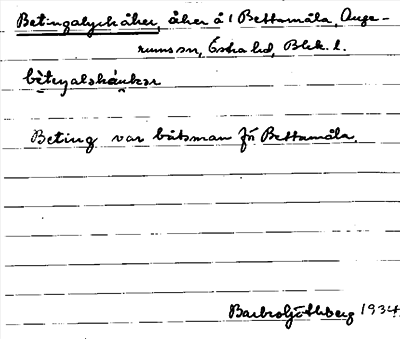 Betingalyckåker, åker å 1 Bettamåla, Auge-
rums sn, Östra hd, Blek. l.
Beting var båtsman för Bettamåla.
Barbro Götherberg 1934.